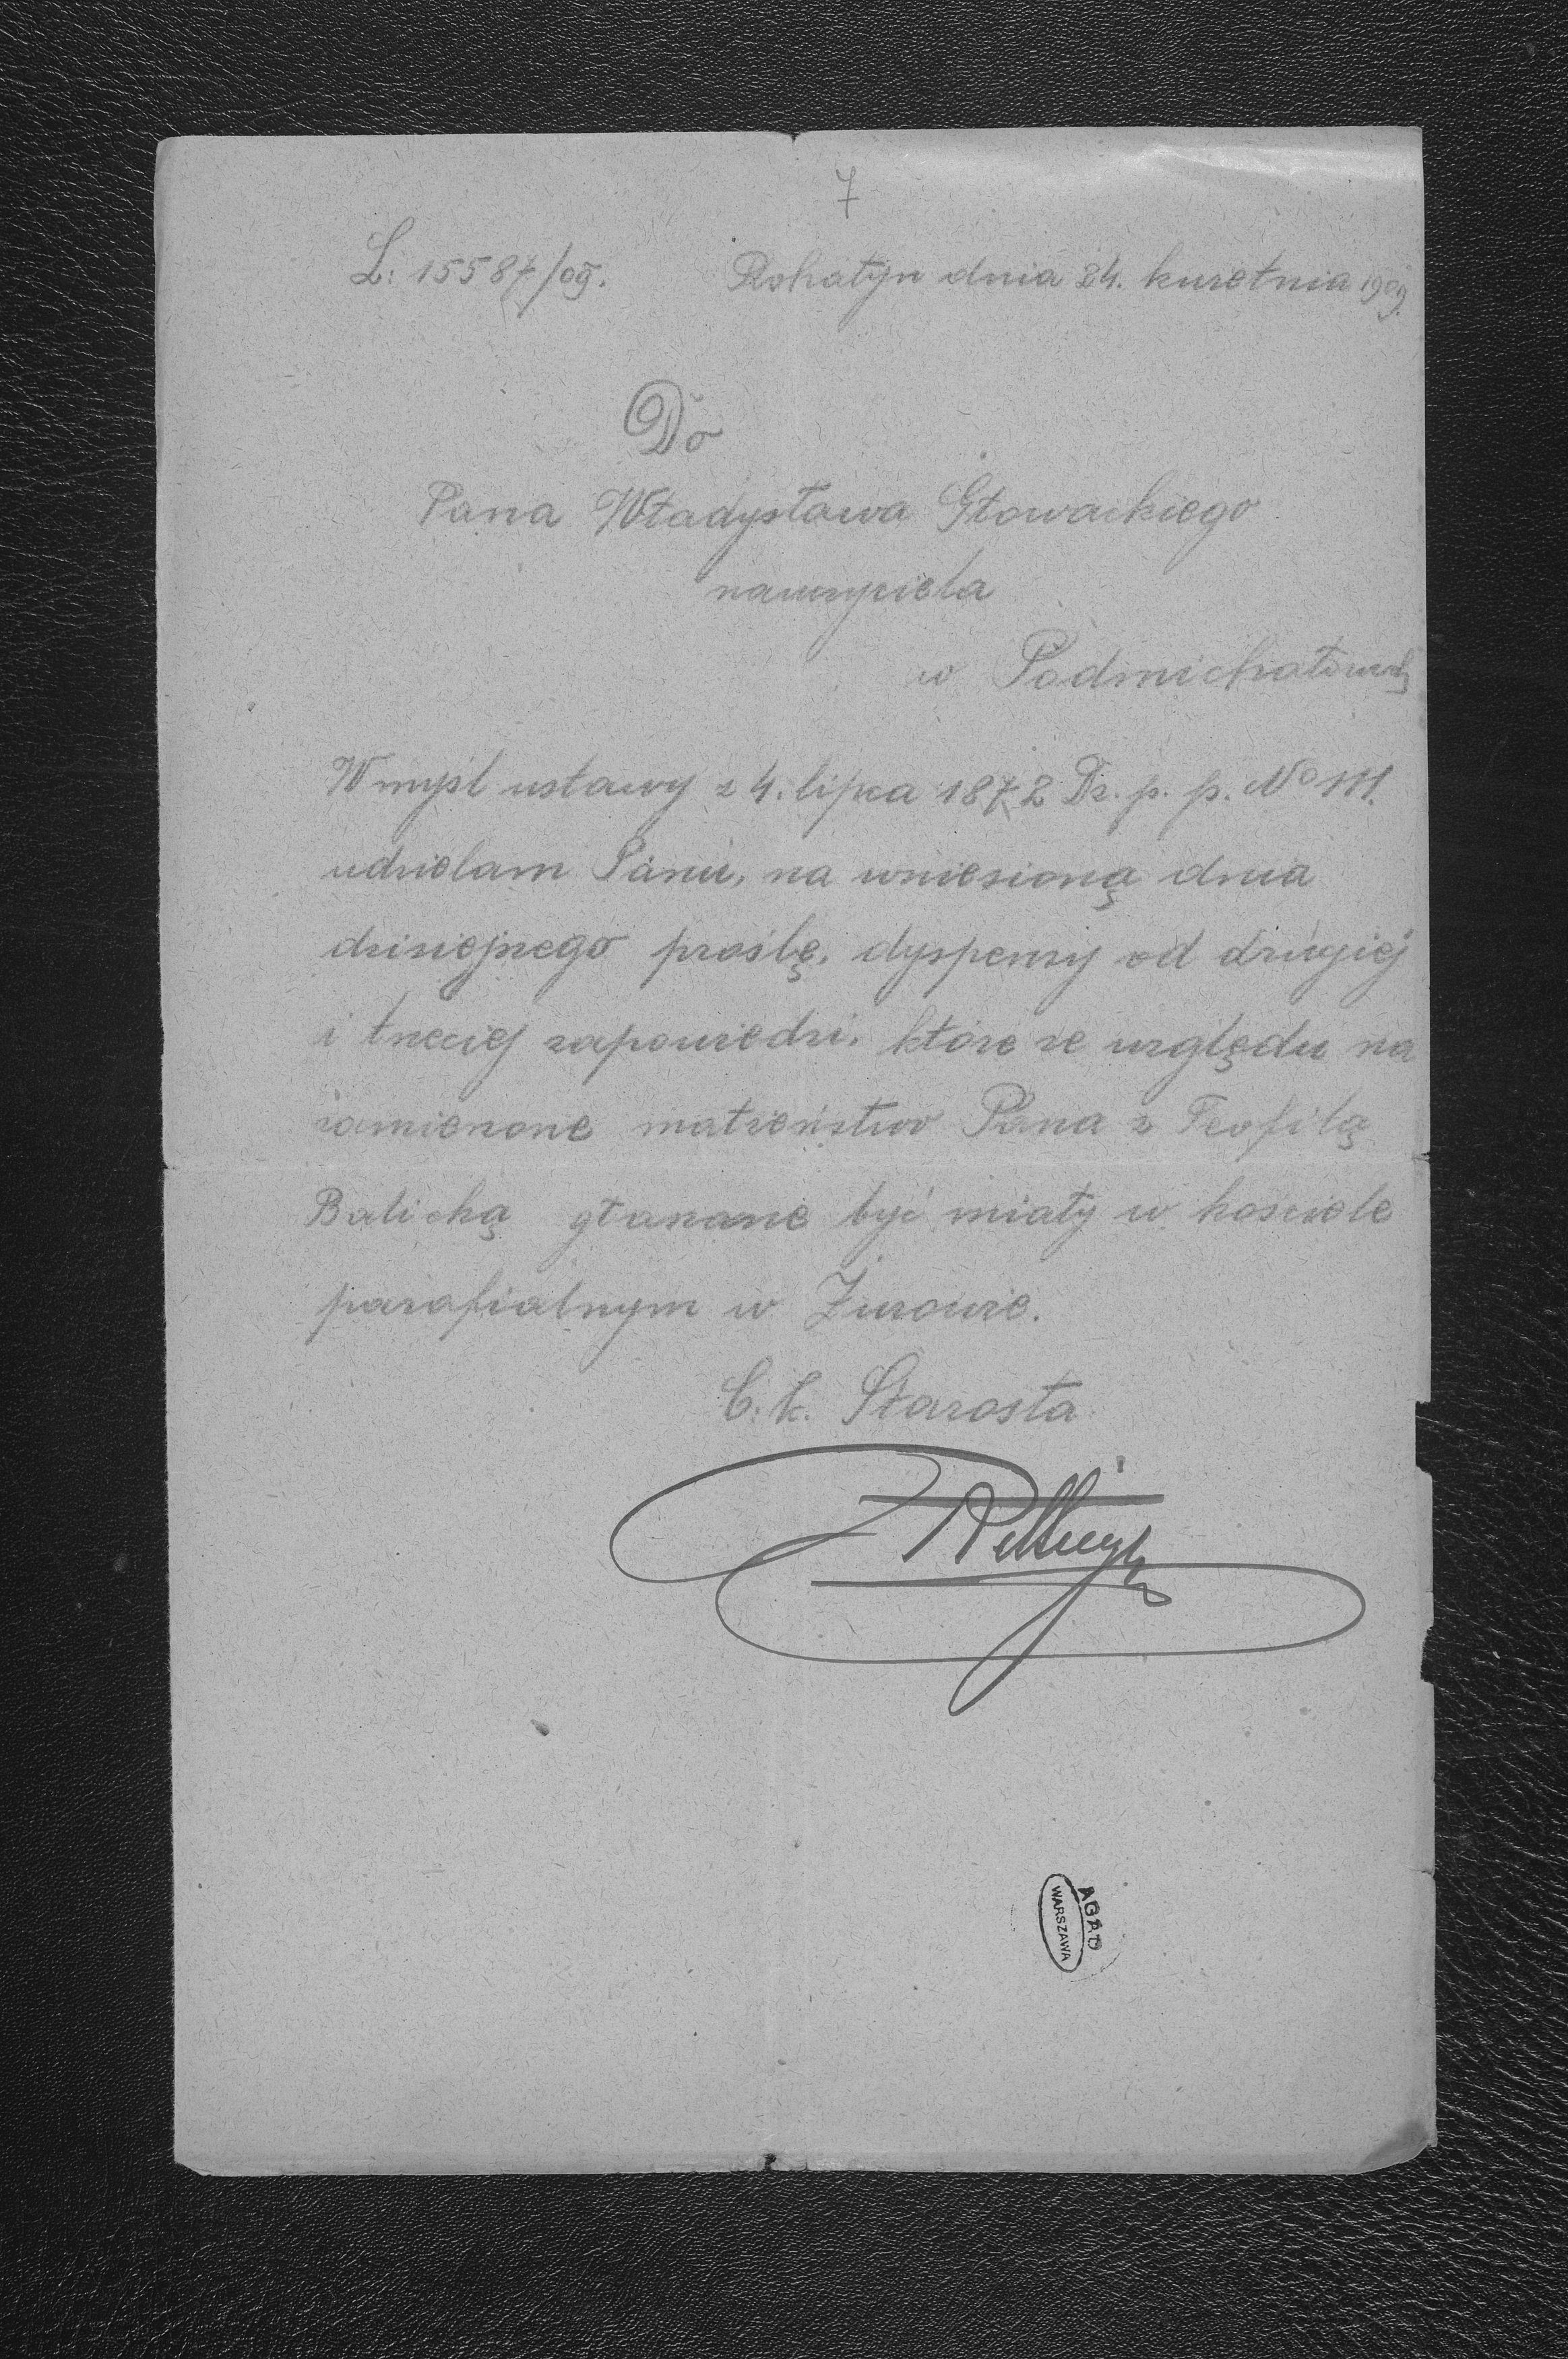 7
L: 15587/09. Rohatyn dnia 24. kwietnia 1909.
Do
Pana Władysława Głowackiego
nauczyciela
w Podmichałowcach
W myśl ustawy z 4. lipca 1872 Dz. p. p. No 111.
udzielam Panu, na wniesioną dnia
dzisiejszego prośbę, dyspenzy od drugiej
i trzeciej zapowiedzi, które ze względu na
zamierzone małżeństwo Pana z Teofilą
Balicką głaszane być miały w kościele
parafialnym w Żurowie.
C. k. Starosta
AGAD
WARSZAWA